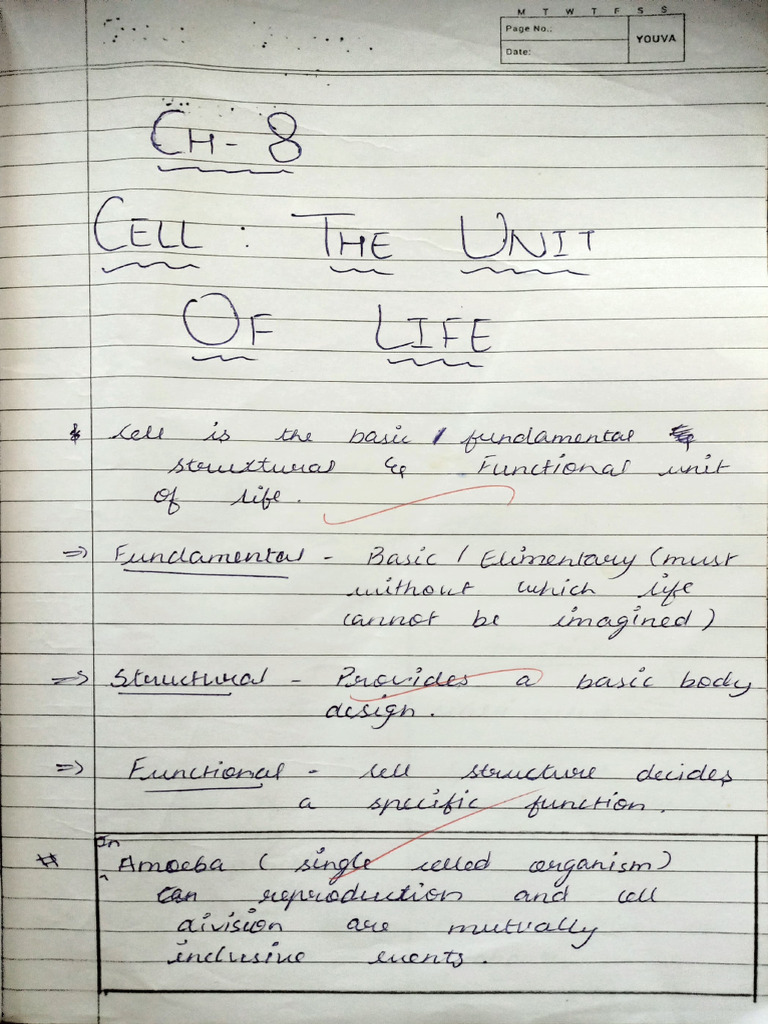 M T W T F S S
Page No.:
Date:
YOUVA
CH- 8
CELL : THE UNIT
OF LIFE
* Cell is the basic / fundamental
structural & Functional unit
of life.
=> Fundamental - Basic / Elimentary (must
without which life
cannot be imagined)
=> Structural - Provides a basic body
design.
=> Functional - Cell structure decides
a specific function.
* In
Amoeba ( single celled organism)
reproduction and cell
division are mutually
inclusive events.